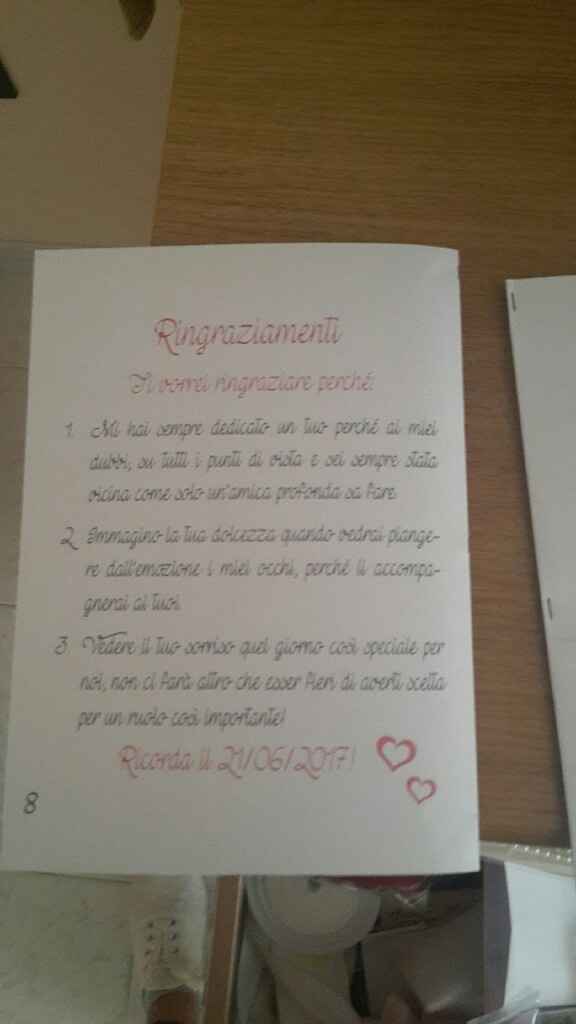 Ringraziamenti
Ti vorrei ringraziare perché:
1. Mi hai sempre dedicato un tuo perché ai miei
dubbi, su tutti i punti di vista e sei sempre stata
vicina come solo un'amica profonda sa fare.
2. Immagino la tua dolcezza quando vedrai piange-
re dall'emozione i miei occhi, perché li accompa-
gnerai ai tuoi.
3. Vedere il tuo sorriso quel giorno così speciale per
noi, non ci farà altro che esser fieri di averti scelta
per un ruolo così importante!
Ricorda il 21/06/2017!
8